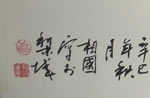 辛巳
年秋
月
相國
寫於
梨城